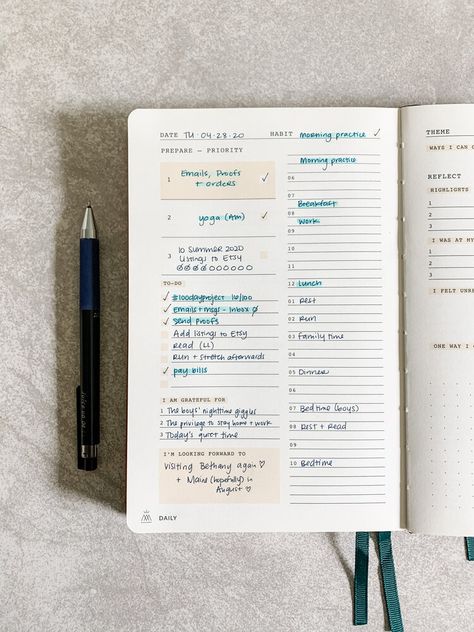 DATE TU 04.28.20 HABIT morning practice ✓
PREPARE — PRIORITY
1 Emails, Proofs + orders ✓
2 yoga (AM) ✓
3 10 Summer 2020
Listings to Etsy
TO-DO
✓ #100dayproject
✓ Emails + msgs - inbox 0
✓ Send proofs
Add listings to Etsy
Read (LL)
Run + stretch afterwards
✓ pay bills
I AM GRATEFUL FOR
1 The boys' nighttime giggles
2 The privilege to stay home + work
3 Today's quiet time
I'M LOOKING FORWARD TO
Visiting Bethany again ♡
+ Maine (hopefully) in
August ♡
DAILY
Morning practice
06
07
Breakfast
08
Work
09
10
11
12 Lunch
01 Rest
02 Run
03 Family time
04
05 Dinner
07 Bedtime (boys)
08 Rest + Read
09
10 Bedtime
THEME
WAYS I CAN
REFLECT
HIGHLIGHTS
1
2
3
I WAS AT MY
1
2
3
I FELT UNR
ONE WAY I